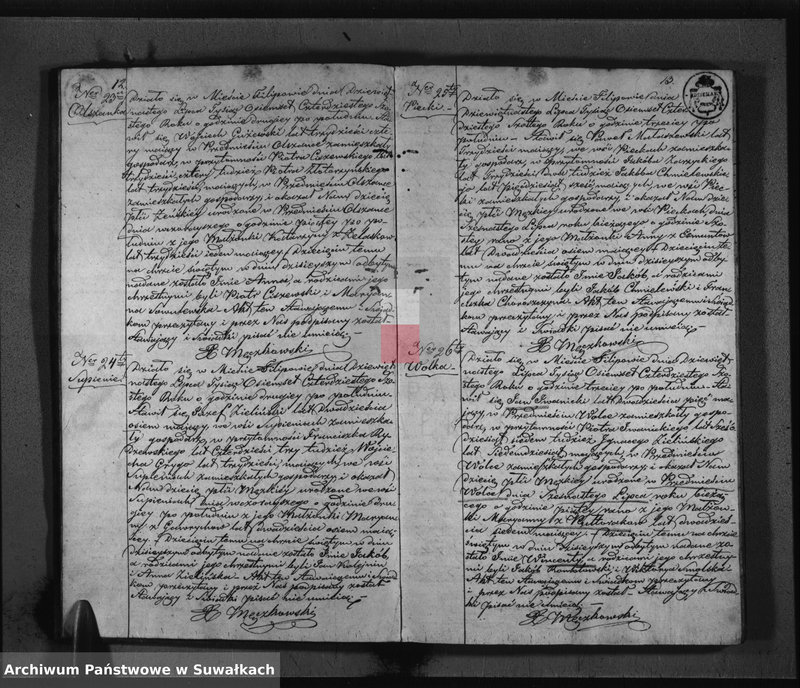 12.
Nro 23.
Olszanka
Działo się w Mieście Filipowie dnia
Lipca Tysiąc Osiemset Czterdziestego
Roku o godzinie drugiey po południu
Wojciech lat trzydzieści
mający w Przedmieściu Olszance zamieszkały
gospodarz, w przytomności Piotra Ciszewskiego lat
trzydzieści cztery tudzież Piotra
lat trzydzieści, mających w Przedmieściu Olszance
zamieszkałych gospodarzy i okazał Nam dziecię
płci Żeńskiey urodzone w Przedmieściu Olszance
dnia wczorayszego o godzinie piątey po po-
łudniu z jego Małżonki Katarzyny z
lat trzydzieści ieden maiącey. Dziecięciu temu
na chrzcie świętym w dniu dzisieyszym odbytym
nadane zostało Imie Anna, a rodzicami jego
chrzestnymi byli Piotr Ciszewski i Maryan-
na Akt ten Stawaiącemu i Świad-
kom przeczytany i przez Nas podpisany został
Stawaiący i Świadki pisać nie umieią.
X Moczkowski
Nro 24
Supienie.
Działo się w Mieście Filipowie dnia Dziewięt-
nastego Lipca Tysiąc Osiemset Czterdziestego Szó-
stego Roku o godzinie drugiey po południu.
Stawił się Józef Zieliński lat Dwadzieścia
osiem maiący we wsi Supieniach zamieszka-
ły gospodarz, w przytomności Franciszka Ry-
dzewskiego lat Czterdzieści trzy tudzież Wojcie-
cha lat trzydzieści, maiących we wsi
Supieniach zamieszkałych gospodarzy i okazał
Nam dziecię płci Męzkiey urodzone we wsi
Supieniach dnia wczorayszego o godzinie dru-
giey po południu z jego Małżonki Maryan-
ny z lat dwadzieścia osiem maią-
cey. Dziecięciu temu na chrzcie świętym w dniu
dzisieyszym odbytym nadane zostało Imie Jakób,
a rodzicami jego chrzestnymi byli Jan
i Anna Zielińska. Akt ten Stawaiącemu i Świad-
kom przeczytany i przez Nas podpisany został
Stawaiący i Świadki pisać nie umieią.
X Moczkowski
13.
Nro 25
Piecki.
Działo się w Mieście Filipowie dnia
Dziewiętnastego Lipca Tysiąc Osiemset Czter-
dziestego Szóstego Roku o godzinie trzeciey po
południu. Stawił się Paweł Matuszewski, lat
Trzydzieści maiący, we wsi Pieckach zamieszka-
ły gospodarz, w przytomności Jakóba
lat Trzydzieści tudzież Jakóba Chmielewskie-
go lat Pięćdziesiąt sześć maiących, we wsi Piec-
kach zamieszkałych gospodarzy i okazał Nam dzie-
cię płci Męzkiey urodzone we wsi Pieckach dnia
Szesnastego Lipca roku bieżącego o godzinie
rano z jego Małżonki Anny z
lat Dwadzieścia osiem maiącey. Dziecięciu te-
mu na chrzcie świętym w dniu dzisieyszym odby-
tym nadane zostało Imie Jakób a rodzicami
jego chrzestnymi byli Jakób Chmielewski i Fran-
ciszka Akt ten Stawaiącemu i Świad-
kom przeczytany i przez Nas podpisany został
Stawaiący i Świadki pisać nie umieią.
X Moczkowski
Nro 26
Wólka.
Działo się w Mieście Filipowie dnia Dziewięt-
nastego Lipca Tysiąc Osiemset Czterdziestego Szó-
stego Roku o godzinie trzeciey po południu. Sta-
wił się Jan Iwanicki lat Dwadzieścia pięć ma-
jący w Przedmieściu Wólce zamieszkały gospo-
darz, w przytomności Piotra Iwanickiego lat Sześć-
dziesiąt siedem tudzież Ignacego Zielińskiego
lat Siedemdziesiąt maiących, w Przedmieściu
Wólce zamieszkałych gospodarzy i okazał Nam
dziecię płci Męzkiey urodzone w Przedmieściu
Wólce dnia Szesnastego Lipca roku bieżą-
cego o godzinie piątey rano z jego Małżon-
ki Maryanny z lat dwadzieś-
cia siedem maiącey. Dziecięciu temu na chrzcie
świętym w dniu dzisieyszym odbytym nadane zo-
stało Imie Wincenty, a rodzicami jego chrzestny-
mi byli Jakób i Wiktorya
Akt ten Stawaiącemu i Świadkom przeczytany
i przez Nas podpisany został. Stawaiący i Świad-
ki pisać nie umieią
X Moczkowski
Archiwum Państwowe w Suwałkach